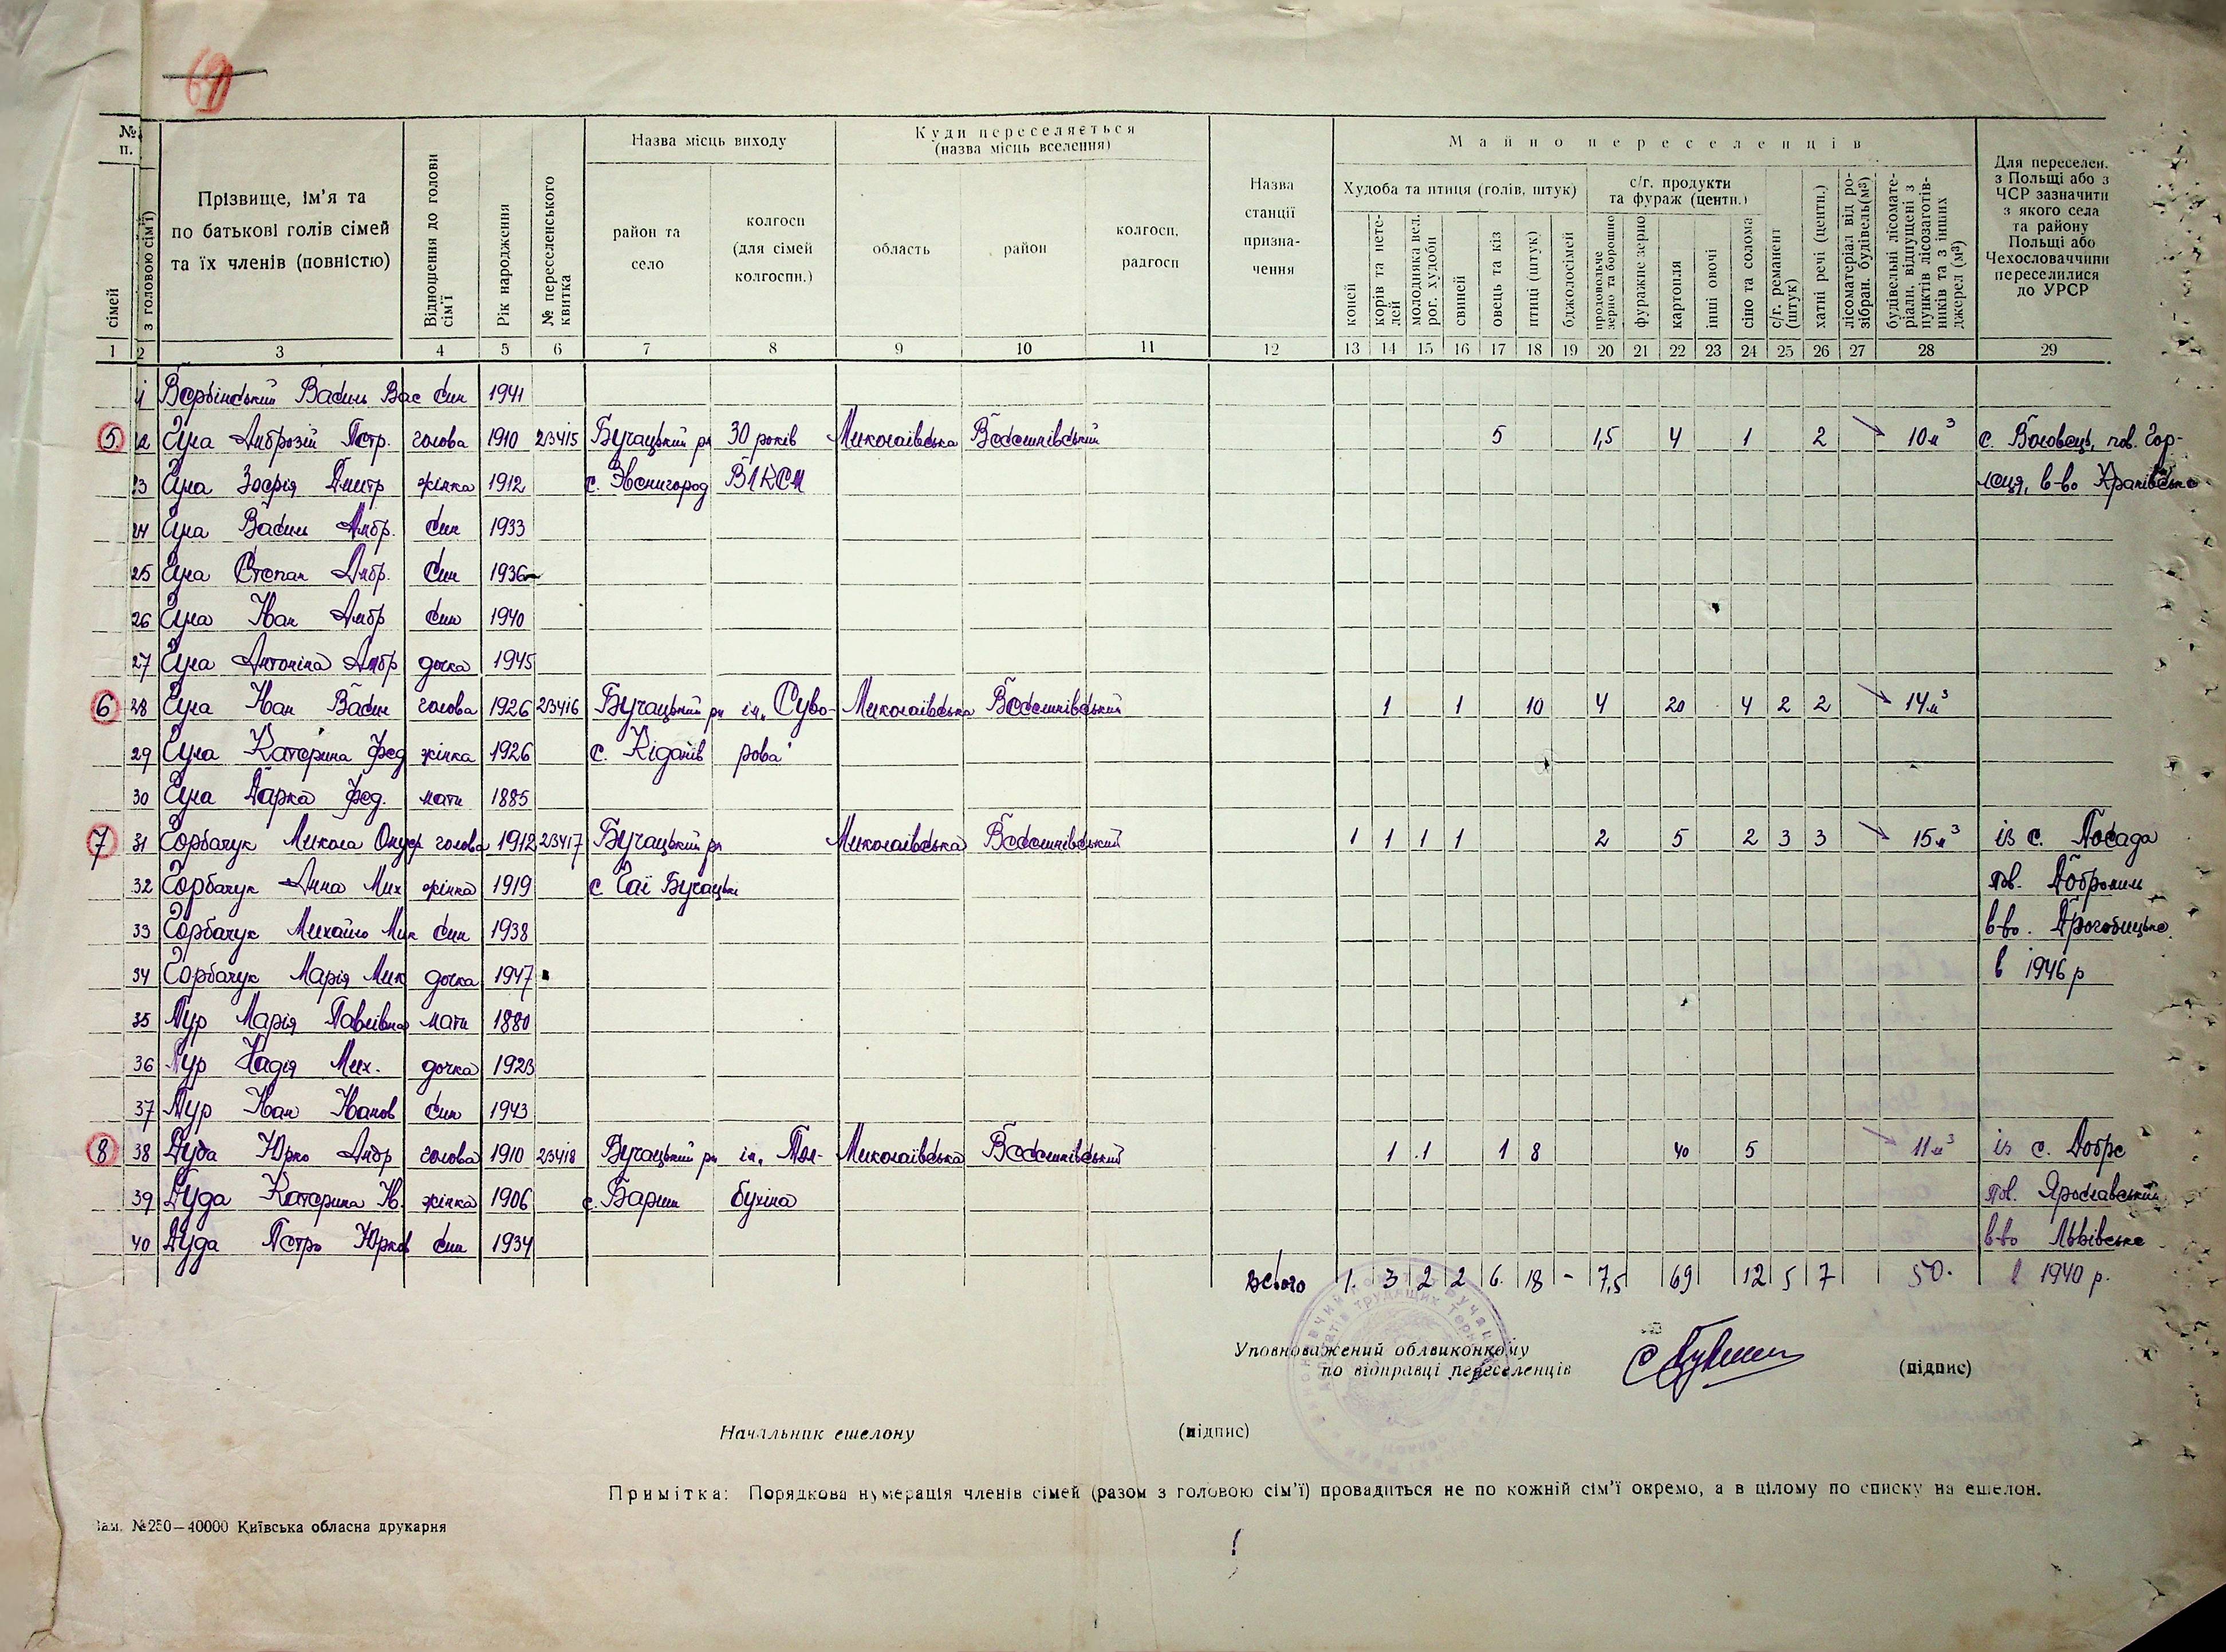 60
№ п.
сімей
з головою сім'ї)
Прізвище, ім'я та по батькові голів сімей та їх членів (повністю)
Відношення до голови сім'ї
Рік народження
№ переселенського квитка
Назва місць виходу
район та село
колгосп (для сімей колгоспн.)
Куди переселяється (назва місць вселення)
область
район
колгосп, радгосп
Назва станції призначення
Майно переселенців
Худоба та птиця (голів, штук)
коней
корів та нетелей
молодняка вел. рог. худоби
свиней
овець та кіз
птиці (штук)
бджолосімей
с/г. продукти та фураж (центн.)
продовольче зерно та борошно
фуражне зерно
картопля
інші овочі
сіно та солома
с/г. реманент (штук)
хатні речі (центн.)
лісоматеріал від розібран. будівель (м³)
будівельні лісоматеріали, відпущені з пунктів лісозаготівників та з інших джерел (м³)
Для переселен. з Польщі або з ЧСР зазначити з якого села та району Польщі або Чехословаччини переселилися до УРСР
1 2 3 4 5 6 7 8 9 10 11 12 13 14 15 16 17 18 19 20 21 22 23 24 25 26 27 28 29
Вербінський Василь Вас син 1941
5 22 Гула Амброзій Петр. голова 1910 23415 Бучацький рн 30 років Миколаївська Веселинівський 5 1,5 4 1 2 10 м³ с. Боловець, пов. Гор-
23 Гула Зофія Дмитр жінка 1912 с. Звенигород ВЛКСМ лиця, в-во Краківське
24 Гула Василь Амбр. син 1933
25 Гула Степан Амбр. син 1936
26 Гула Іван Амбр син 1940
27 Гула Антоніна Амбр дочка 1945
6 28 Гула Іван Васил голова 1926 23416 Бучацький рн ім. „Суво- Миколаївська Веселинівський 1 1 10 4 20 4 2 2 14 м³
29 Гула Катерина Фед жінка 1926 с. Кіданів рова"
30 Гула Дарка Фед. мати 1885
7 31 Горбачук Микола Онуф голова 1912 23417 Бучацький рн Миколаївська Веселинівський 1 1 1 1 2 5 2 3 3 15 м³ із с. Посада
32 Горбачук Анна Мих жінка 1919 с. Гаї Бучацькі пов. Добромиль
33 Горбачук Михайло Мик син 1938 в-во. Дрогобицьке
34 Горбачук Марія Мик дочка 1947 в 1946 р
35 Пур Марія Павлівна мати 1880
36 Пур Надія Мих. дочка 1923
37 Пур Іван Іванов син 1943
8 38 Дуда Юрко Андр голова 1910 23418 Бучацький рн ім. Тол- Миколаївська Веселинівський 1 1 1 8 40 5 11 м³ із с. Добре
39 Дуда Катерина Н. жінка 1906 с. Бариш бухіна пов. Ярославський
40 Дуда Петро Юрков син 1934 в-во Львівське
всього 1. 3 2 2 6. 18 - 7,5 69 12 5 7 50. в 1940 р.
Уповноважений облвиконкому
по відправці переселенців (підпис)
Начальник ешелону (підпис)
Примітка: Порядкова нумерація членів сімей (разом з головою сім'ї) провадиться не по кожній сім'ї окремо, а в цілому по списку на ешелон.
Зам. №250—40000 Київська обласна друкарня